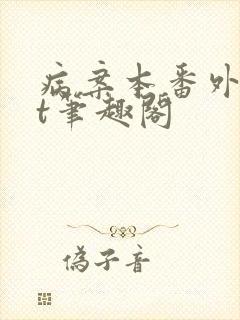 病案本番外
t笔趣阁
伪子音